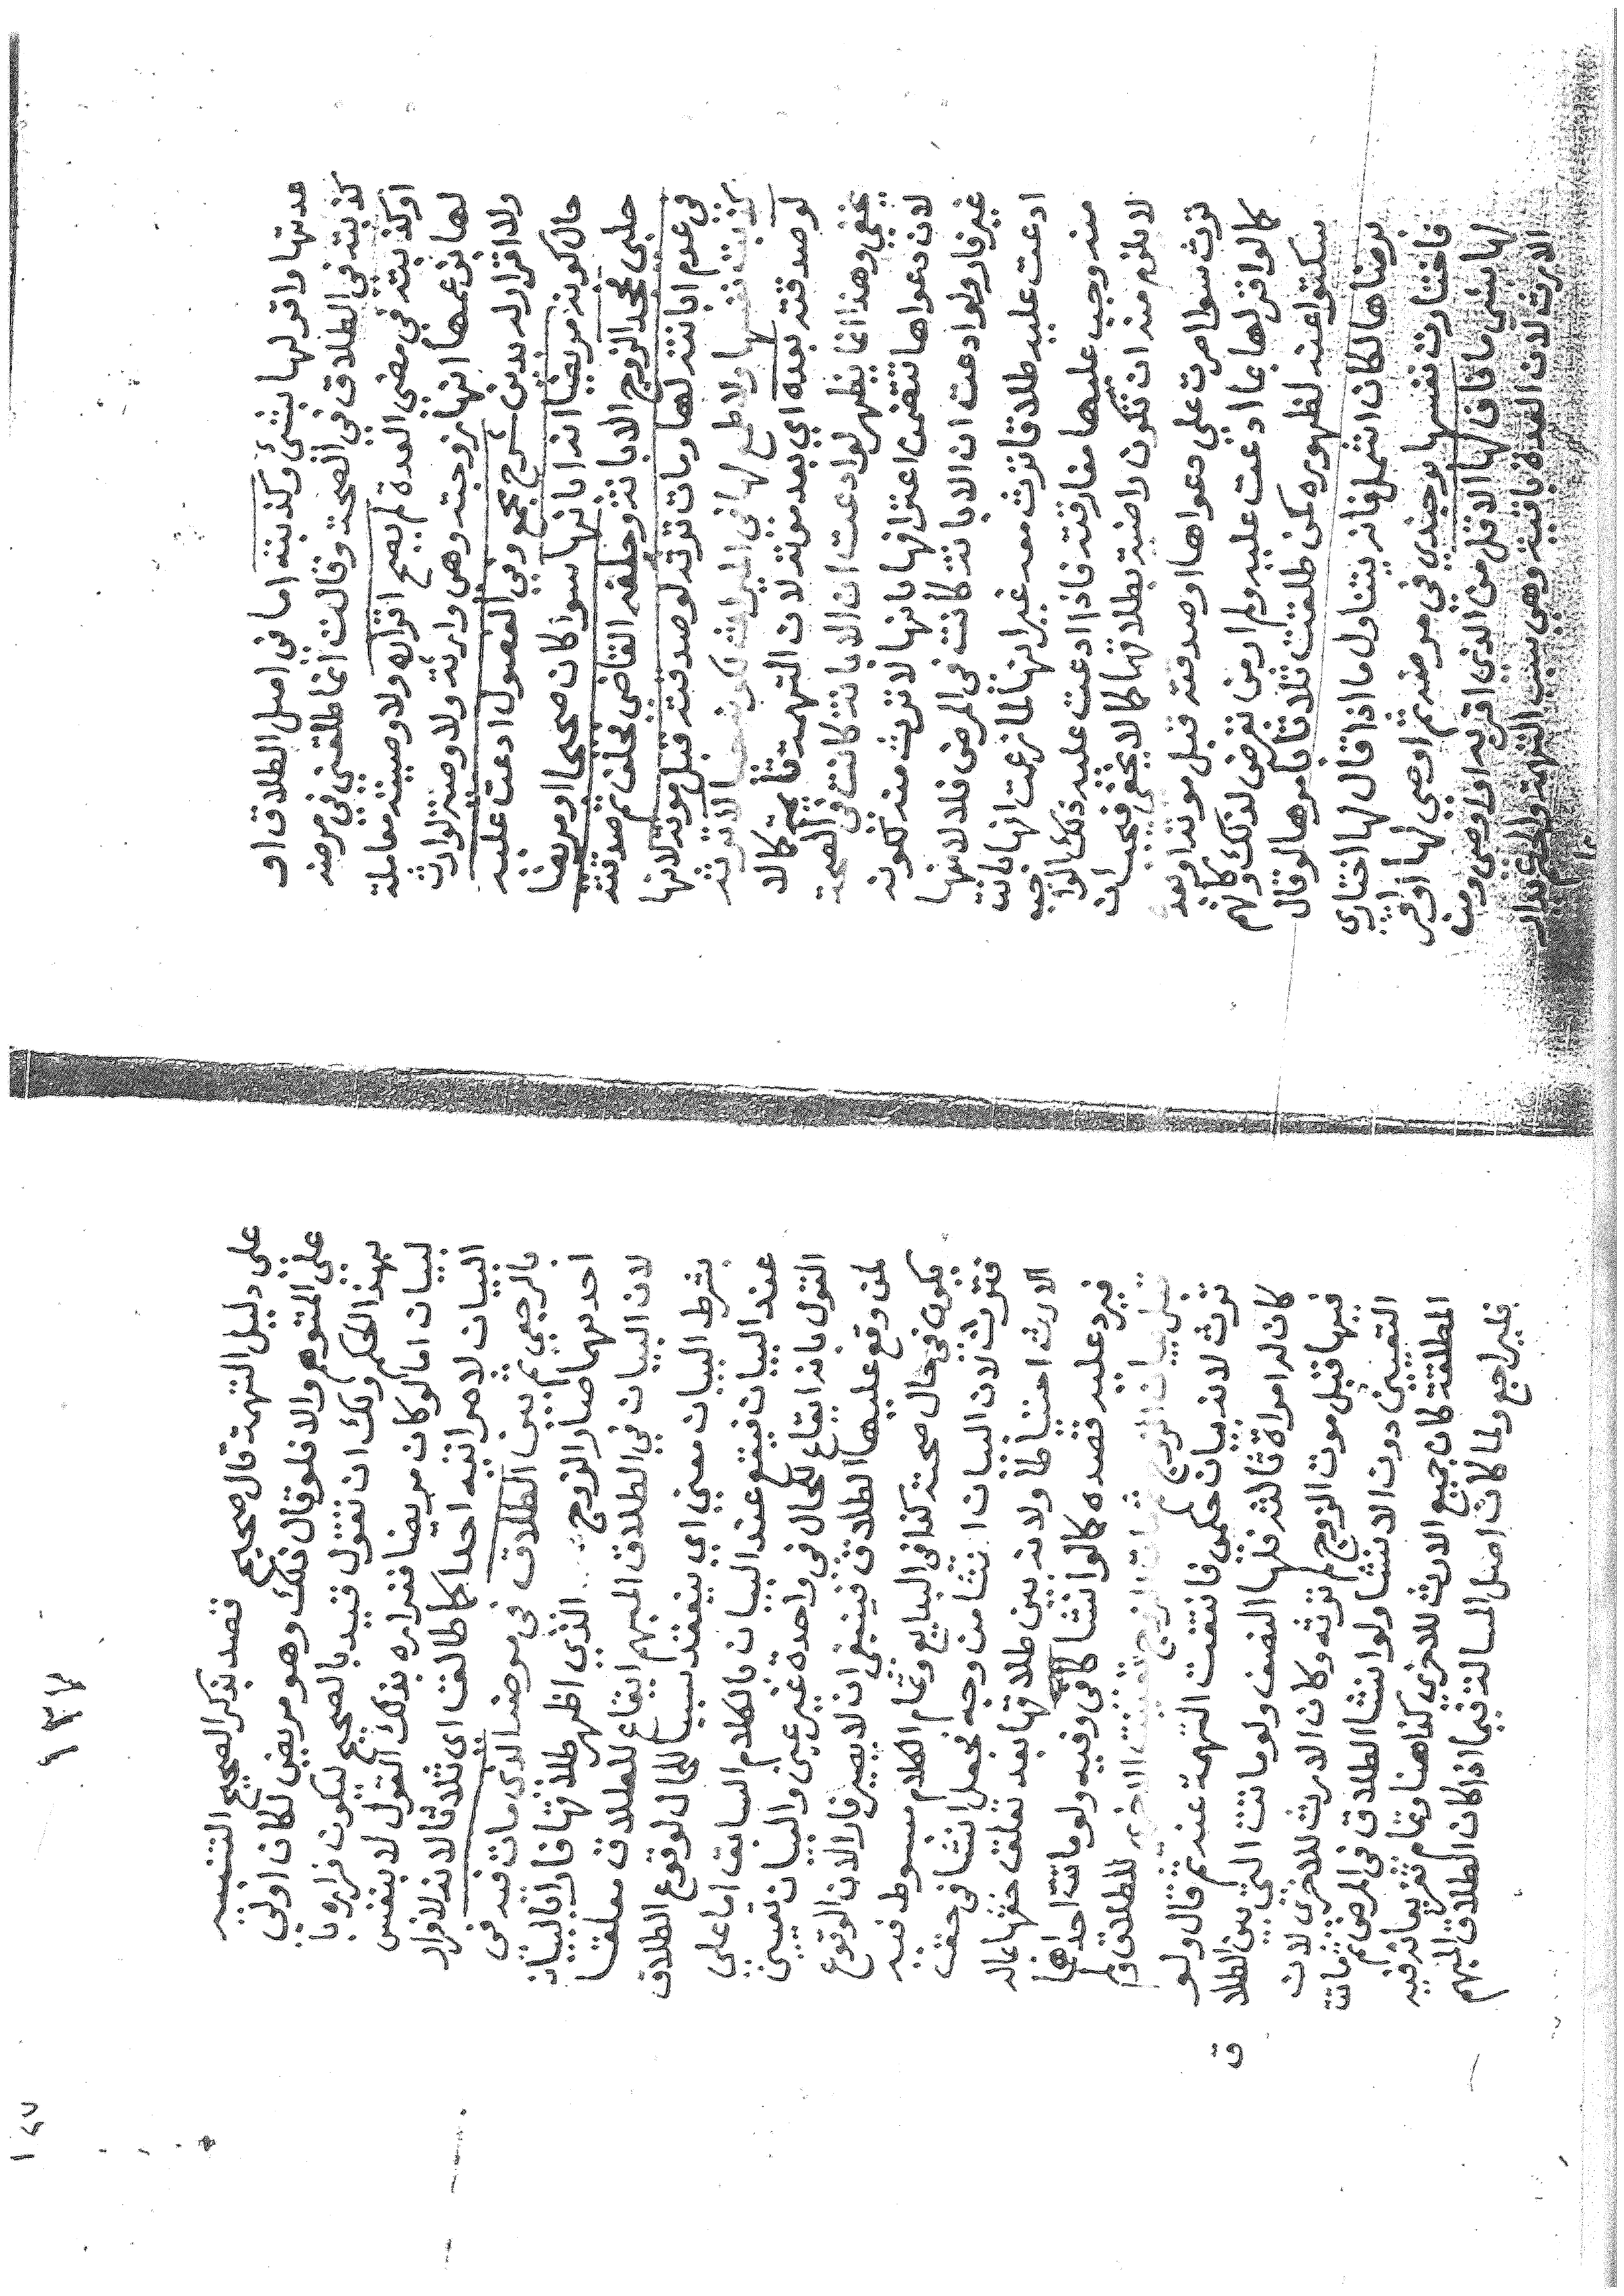 عدتها واقر لها بشئ وكذبته اما في اصل الطلاق او
كذبته في الطلاق في الصحة وقالت انما طلقني في مرضه
اوكذبته في مضى العدة لم يصح اقراره ولا وصيته معاملة
لها بزعمها انها زوجته وهي وارثة ولا وصية لوارث
ولا اقرار له بدين شرح مجمع وفي الفصول ادعت عليه
حال كونه مريضا انه ابانها سوا كان صحيحا او مريضا
حلبي فجحد الزوج الابانة وحلفه القاضي فحلف ثم صدقته
في عدم ابانته لها ومات ترثه لو صدقته قبل موته لانها
كذبت نفسها ولا طمع لها في الميراث لكونها لا ترثه
لو صدقته بعده اي بعد موته لان التهمة قائمة كالا
يخفى وهذا انما يظهر لو ادعت ان الابانة كانت في الصحة
لان دعواها تتضمن اعترافها بانها لا ترث منه لكونه
غير فار ولو ادعت ان الابانة كانت في المرض فلا لانها
ادعت عليه طلاقا ترث معه غير انها لما زعمت انها بانت
منه وجب عليها مفارقته فاذا ادعت عليه ذلك الواجب
لا يلزم منه ان تكون راضية بطلاقها كالا يخفى فيجب ان
ترث سوا مرت علي دعواها او صدقته قبل موته او بعده
كالو اقر لها بما ادعت عليه ولم ار من تعرض لذلك وكانهم
سكتوا عنه لظهوره كمن طلقت ثلاثا بامرها لو قال
برضاها لكان اشمل فانه يتناول ما اذا قال لها اختاري
فاختارت نفسها بوجندي في مرضه ثم اوصى لها او اقر
لها بشى ما فان لها الاقل من الذي اقر به او اوصى ومن
الارث لان العدة باقية وهي سبب التهمة والحكم يدار
١٣٧
١٤٧
على دليل التهمة قال صحيح قصد بذكر الصحيح التنبيه
على المتوهم والا فلو قال ذلك وهو مريض لكان اولى
بهذا الحكم ولك ان تقول قيد بالصحيح ليكون فراره با
لبيان اما لو كان مريضا ففراره بذلك القول لا بنفس
البيان لامراتيه احداكما طالق اى ثلاثا لانه لا فرار
بالرجعي ثم بين الطلاق في مرضه الذى مات فيه في
احدهما صار الزوج الذي اظهر طلاقها فارا بالبيان
لان البيان في الطلاق المبهم ايقاع للطلاق معلقا
بشرط البيان معني اي ينعقد سببا للحال لوقوع الطلاق
عند البيان فيقع عند البيان بالكلام السابق اما على
القول بانه ايقاع للحال في واحدة غير عين والبيان تعيين
لمن وقع عليها الطلاق فينبغى ان لا يصير فارا لان الوقوع
يكون في حال صحته كذا في البدايع وتمام الكلام مبسوط فيه
فترث لان البيان انشا من وجه فجعل انشا فى حقه
الارث احتياطا ولانه بين طلاقها بعد تعلق حقها بماله
فيرد عليه قصده كالو انشا كافى وفيه ولو ماتت احداهما
قبل بيان الزوج ثم مات الزوج تعينت الاخرى للطلاق ولم
ترث لانه بيان حكمى فانتفت التهمة عنه ثم قال ولو
كان له امراة ثالثة فلها النصف ولو ماتت التي بين الطلا
ق
فيها قبل موت الزوج لم ترثه وكان الارث للاخرى لان
التعيين دون الانشا ولو انشا الطلاق في المرض ثم ماتت
المطلقة كان جميع الارث للاخرى كذا هنا وتمام تقريعاته فيه
فليراجع ولما كان اصل المسالة فيما اذا كان الطلاق المبهم